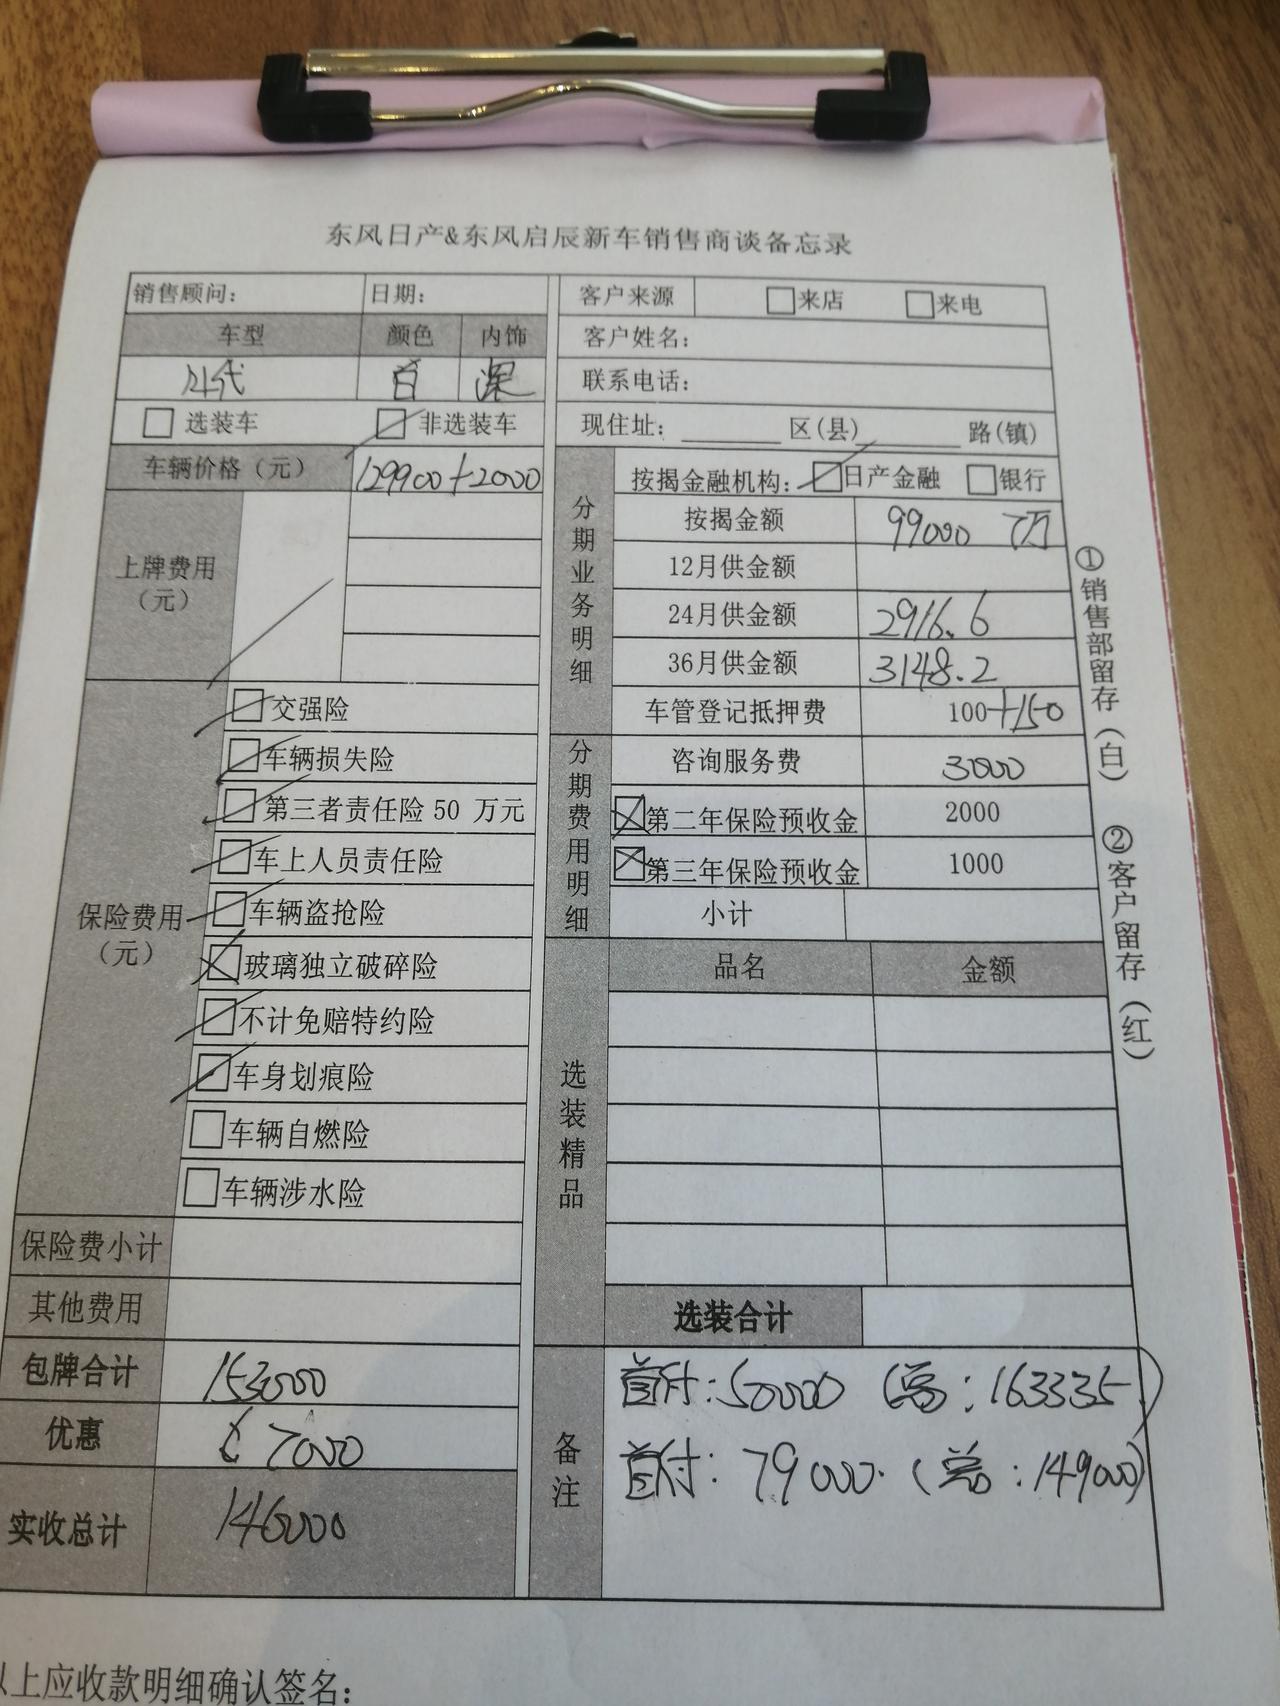 东风日产&东风启辰新车销售商谈备忘录
销售顾问: 日期:
车型 颜色 内饰
白 深
选装车 非选装车
车辆价格（元） 129900+2000
上牌费用
（元）
保险费用
（元）
交强险
车辆损失险
第三者责任险 50 万元
车上人员责任险
车辆盗抢险
玻璃独立破碎险
不计免赔特约险
车身划痕险
车辆自燃险
车辆涉水险
保险费小计
其他费用
包牌合计 153000
优惠 7000
实收总计 146000
客户来源 来店 来电
客户姓名:
联系电话:
现住址: 区(县) 路(镇)
分期业务明细
按揭金融机构: 日产金融 银行
按揭金额 99000 7万
12月供金额
24月供金额 2916.6
36月供金额 3148.2
车管登记抵押费 100+150
分期费用明细
咨询服务费 3000
第二年保险预收金 2000
第三年保险预收金 1000
小计
选装精品
品名 金额
选装合计
备注
首付:50000 (总:163335)
首付:79000. (总:149000)
以上应收款明细确认签名:
①销售部留存(白) ②客户留存(红)